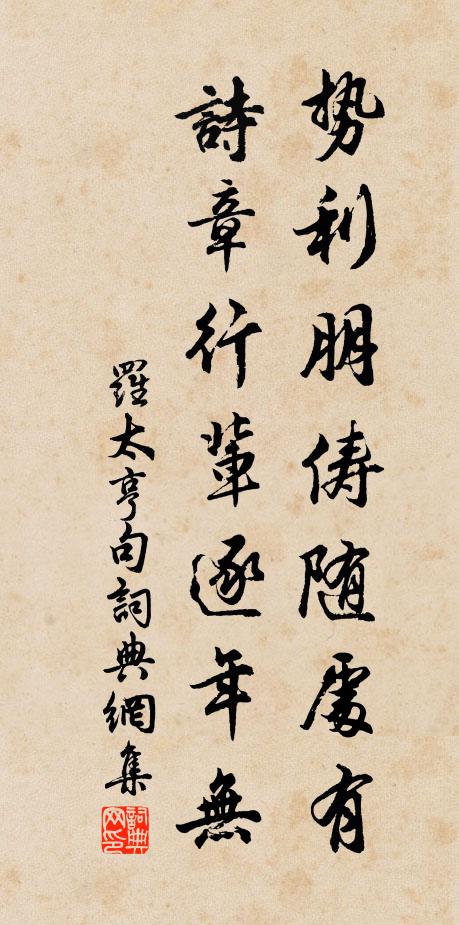 势利朋俦随處有
詩章行輩逐年無
羅太亨句詞典網集
詞典网印